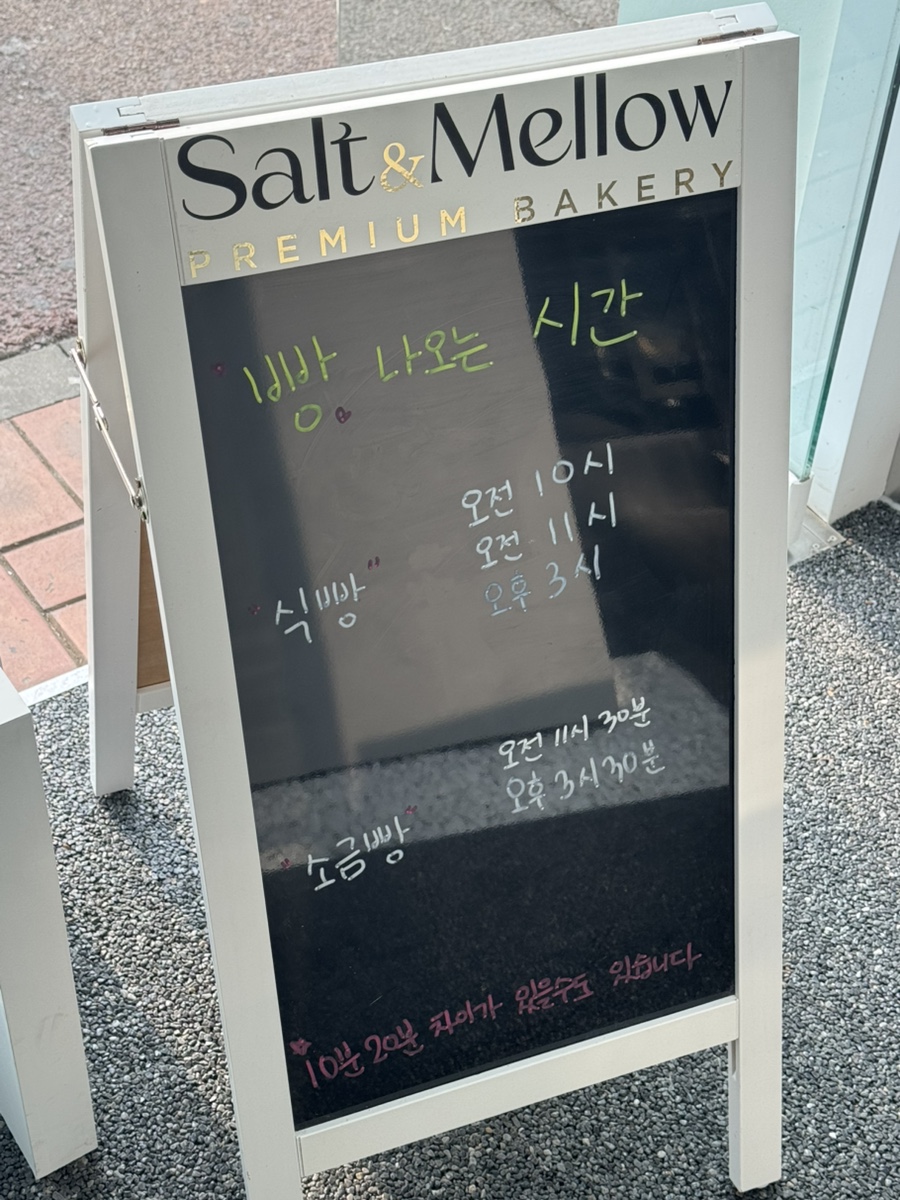 Salt & Mellow
PREMIUM BAKERY
빵 나오는 시간
오전 10시
오전 11시
오후 3시
"식빵"
오전 11시 30분
오후 3시 30분
"소금빵"
10분 20분 차이가 있을수도 있습니다